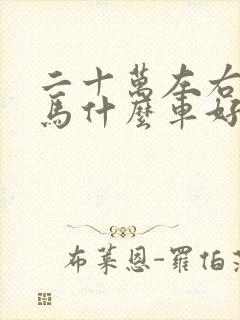 二十萬左右
馬什麼車好
布萊恩-羅伯